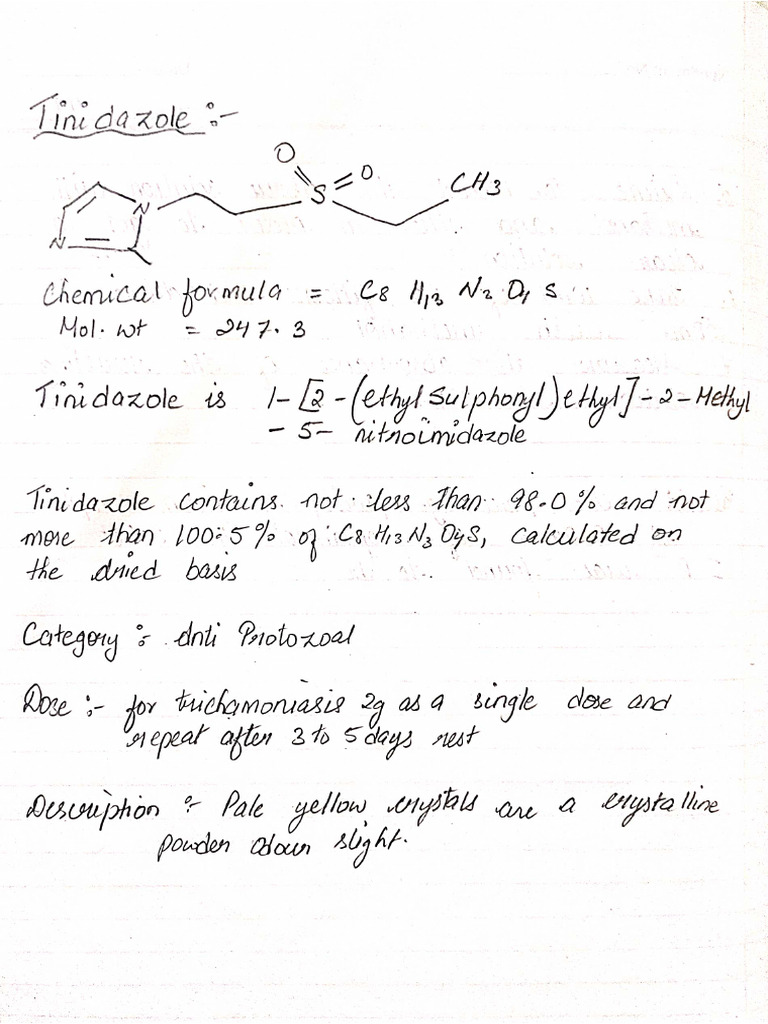 Tinidazole :-
O
S
O
CH3
N
N
Chemical formula = C8 H13 N2 O4 S
Mol. wt = 247.3
Tinidazole is 1-[2-(ethyl Sulphonyl)ethyl]-2-Methyl
-5- nitnoimidazole
Tinidazole contains not less than 98.0% and not
more than 100.5% of C8 H13 N3 O4S, calculated on
the dried basis
Category :- Anti Protozoal
Dose :- for trichamoniasis 2g as a single dose and
repeat after 3 to 5 days rest
Description :- Pale yellow crystals are a crystalline
powder odour slight.